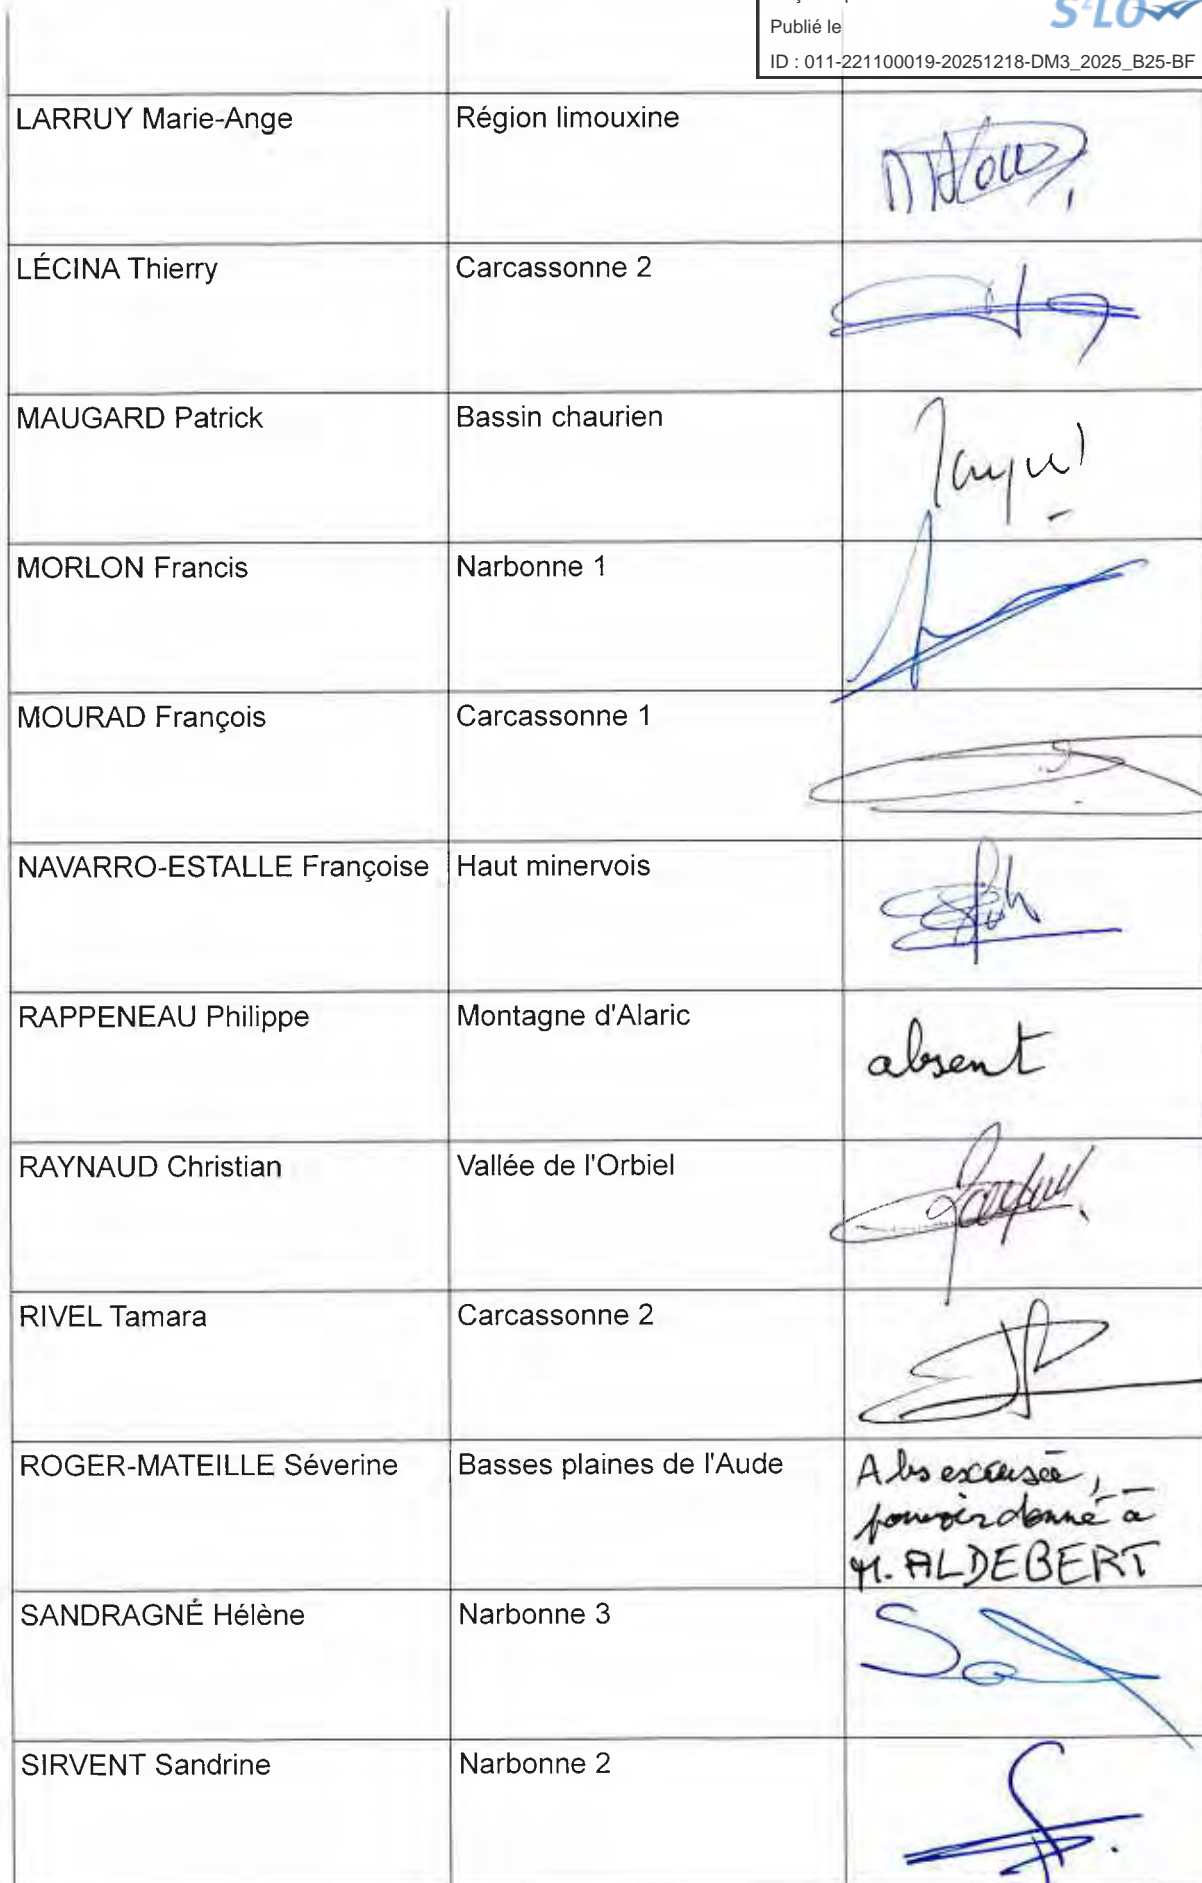 Publié le
S²LOW
ID : 011-221100019-20251218-DM3_2025_B25-BF
LARRUY Marie-Ange Région limouxine
LÉCINA Thierry Carcassonne 2
MAUGARD Patrick Bassin chaurien
MORLON Francis Narbonne 1
MOURAD François Carcassonne 1
NAVARRO-ESTALLE Françoise Haut minervois
RAPPENEAU Philippe Montagne d'Alaric absent
RAYNAUD Christian Vallée de l'Orbiel
RIVEL Tamara Carcassonne 2
ROGER-MATEILLE Séverine Basses plaines de l'Aude Abs excusée,
pouvoir donné à
M. ALDEBERT
SANDRAGNÉ Hélène Narbonne 3
SIRVENT Sandrine Narbonne 2